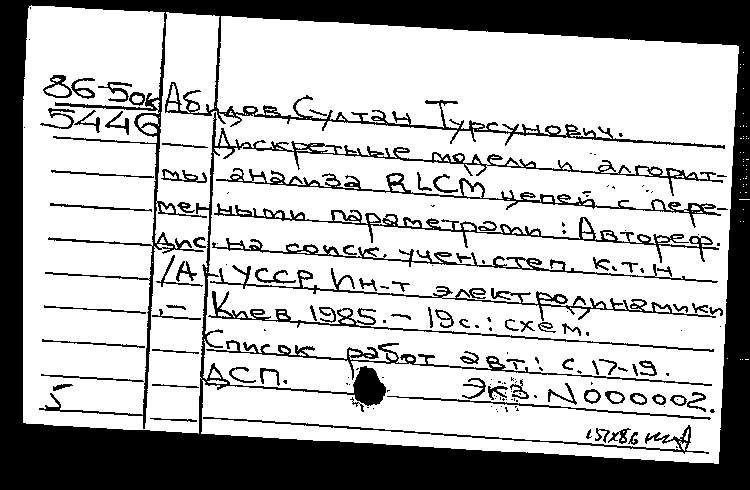 86-5ок Абидов, Султан Турсунович.
5446 Дискретные модели и алгорит=
мы анализа RLCM цепей с пере-
менными параметрами : Автореф.
дис. на соиск. учен. степ. к.т.н.
/АН УССР, Ин-т электродинамики
.- Киев, 1985.- 19с.: схем.
Список работ авт.: с. 17-19.
ДСП. Экз. N000002.
5